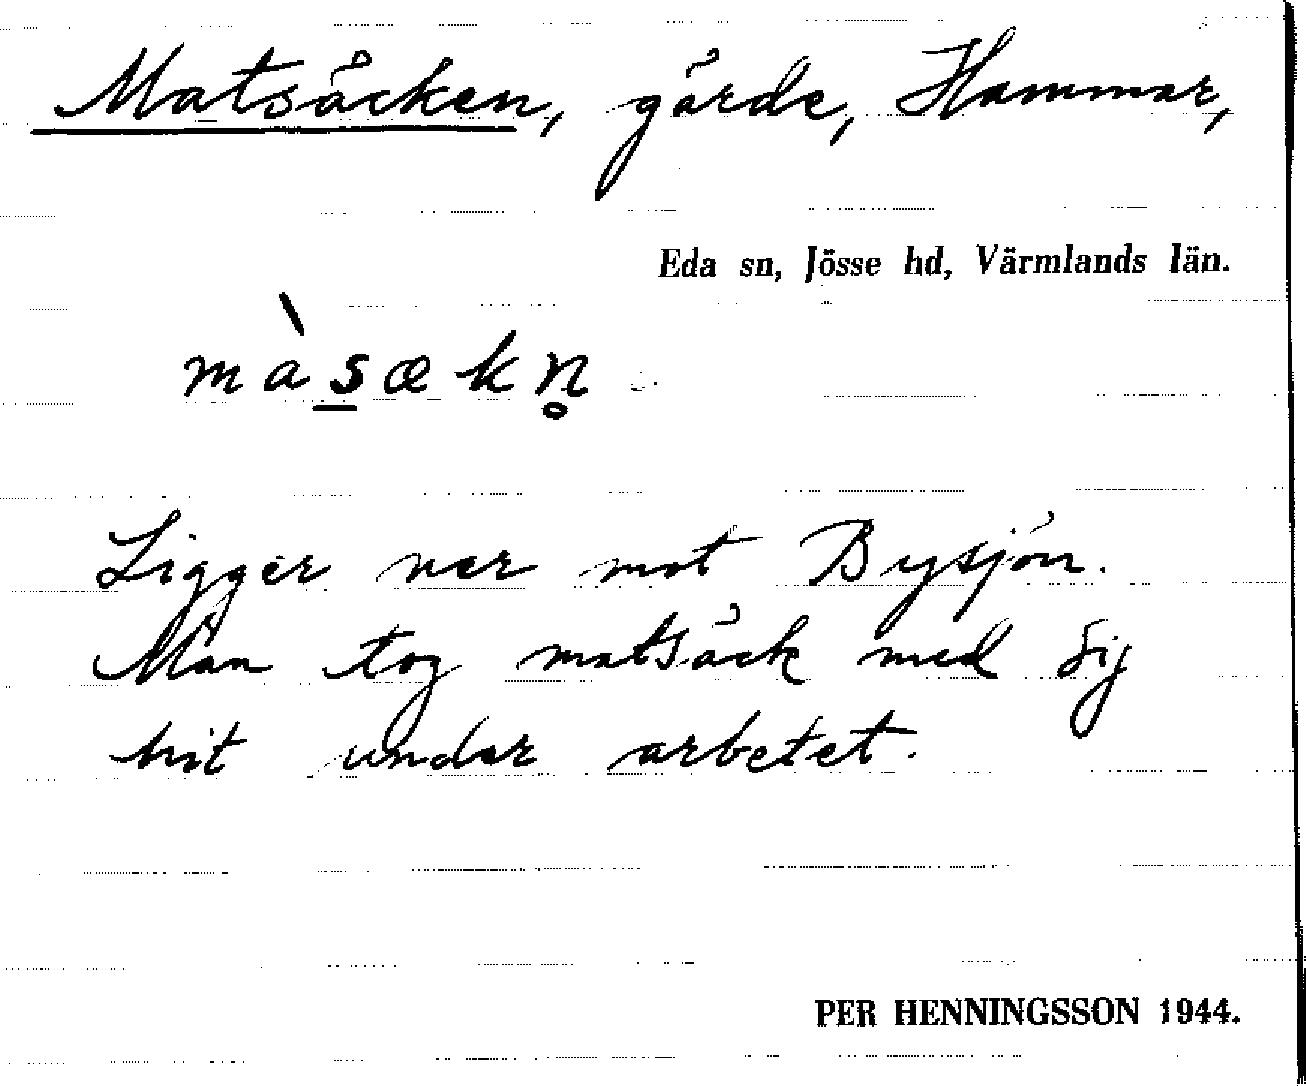 Matsäcken, gärde, Hammar,
Eda sn, Jösse hd, Värmlands län.
màsækn̥
Ligger ner mot Bysjön.
Man tog matsäck med sig
hit under arbetet.
PER HENNINGSSON 1944.